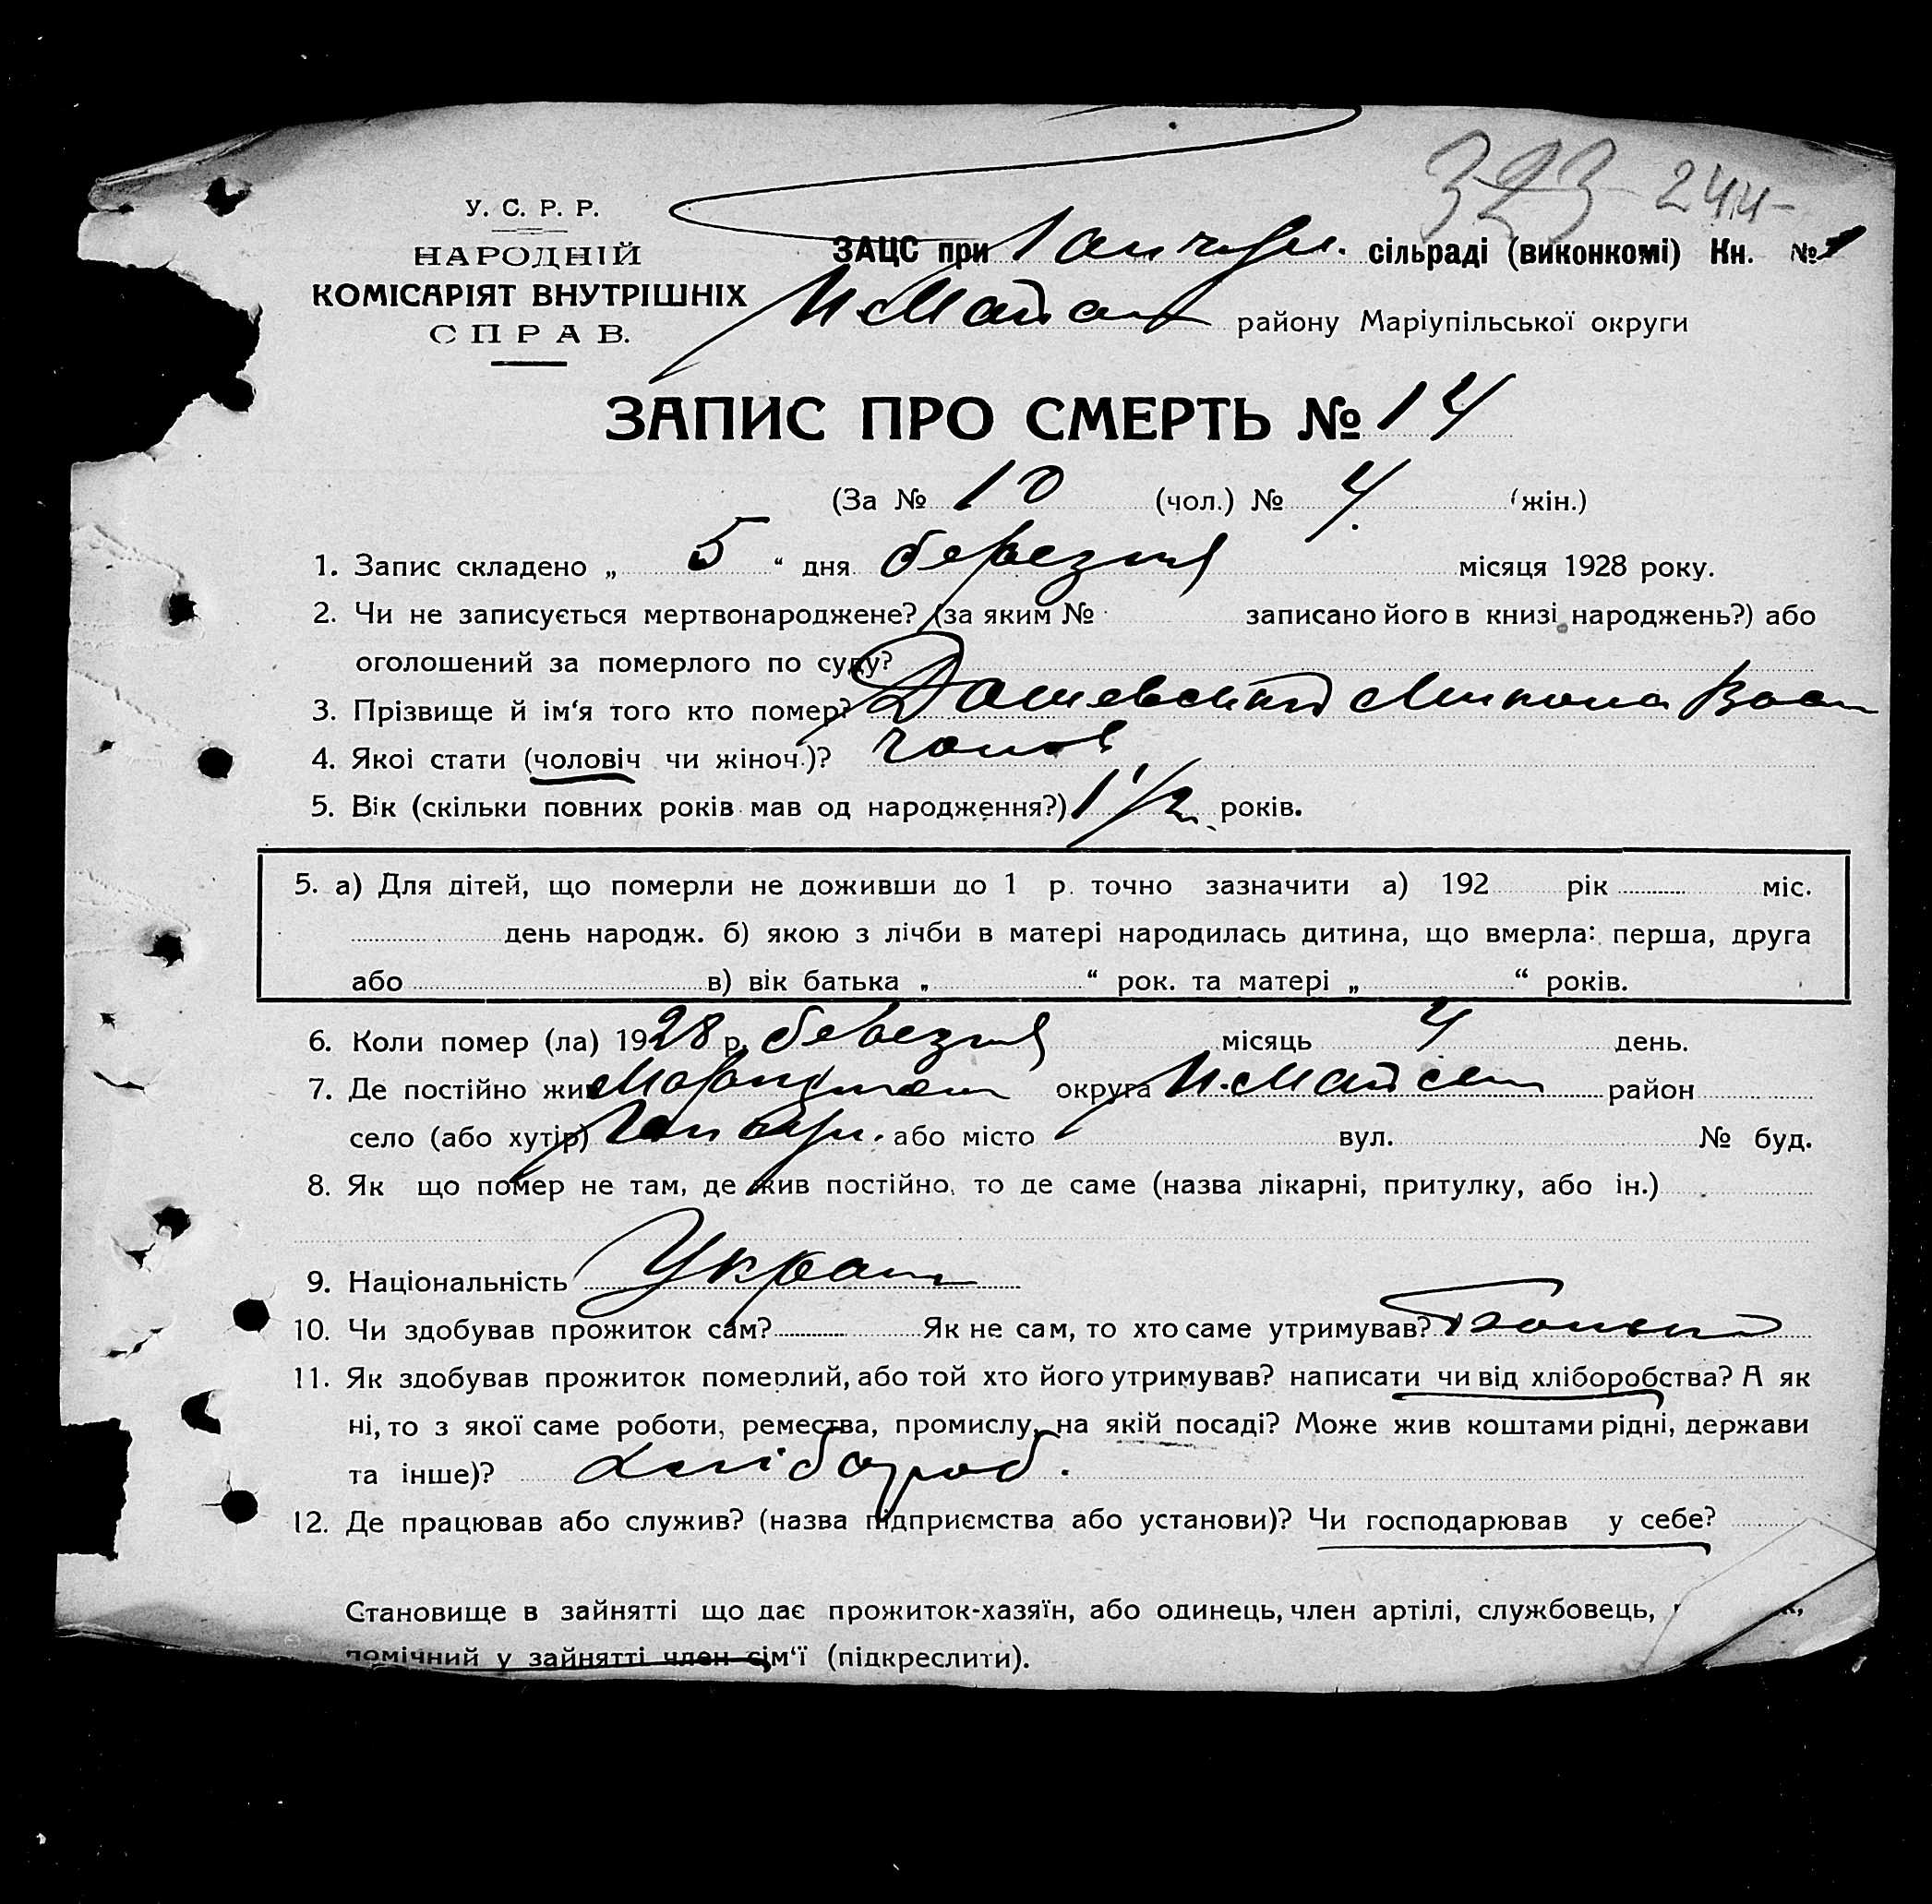 323 244
У. С. Р. Р.
НАРОДНІЙ
КОМІСАРІЯТ ВНУТРІШНІХ
СПРАВ.
ЗАЦС при сільраді (виконкомі) Кн. № 1
району Маріупільської округи
ЗАПИС ПРО СМЕРТЬ № 14
(За № 10 (чол.) № 4 (жін.)
1. Запис складено „ 5 “ дня березня місяця 1928 року.
2. Чи не записується мертвонароджене? (за яким № записано його в книзі народжень?) або
оголошений за померлого по суду?
3. Прізвище й ім‘я того кто помер? Дашевский Микола Вас
4. Якої стати (чоловіч чи жіноч.)? чолов
5. Вік (скільки повних років мав од народження?) 1 1/2 років.
5. а) Для дітей, що померли не доживши до 1 р. точно зазначити а) 192 рік міс.
день народж. б) якою з лічби в матері народилась дитина, що вмерла: перша, друга
або в) вік батька „ “ рок. та матері „ “ років.
6. Коли помер (ла) 1928 р. березня місяць 4 день.
7. Де постійно жив округа район
село (або хутір) або місто вул. № буд.
8. Як що помер не там, де жив постійно, то де саме (назва лікарні, притулку, або ін.)
9. Національність Украин
10. Чи здобував прожиток сам? Як не сам, то хто саме утримував? Батьки
11. Як здобував прожиток померлий, або той хто його утримував? написати чи від хліборобства? А як
ні, то з якої саме роботи, ремества, промислу, на якій посаді? Може жив коштами рідні, держави
та інше)? хлібороб.
12. Де працював або служив? (назва підприємства або установи)? Чи господарював у себе?
Становище в зайнятті що дає прожиток-хазяїн, або одинець, член артілі, службовець,
помічний у зайнятті член сім‘ї (підкреслити).